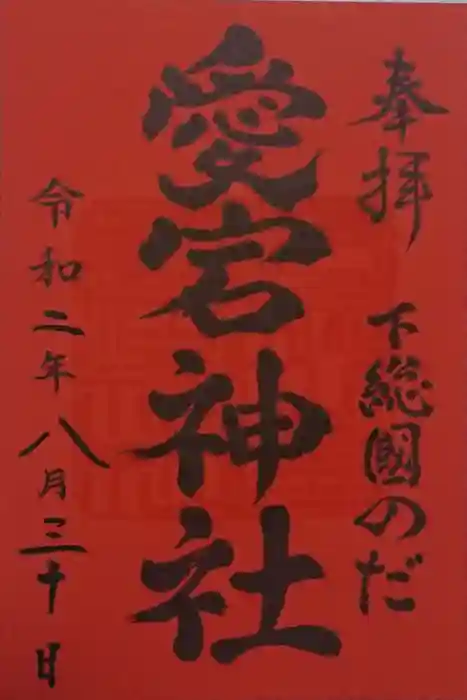 奉拝
下総國のだ
愛宕神社
令和二年八月三十日